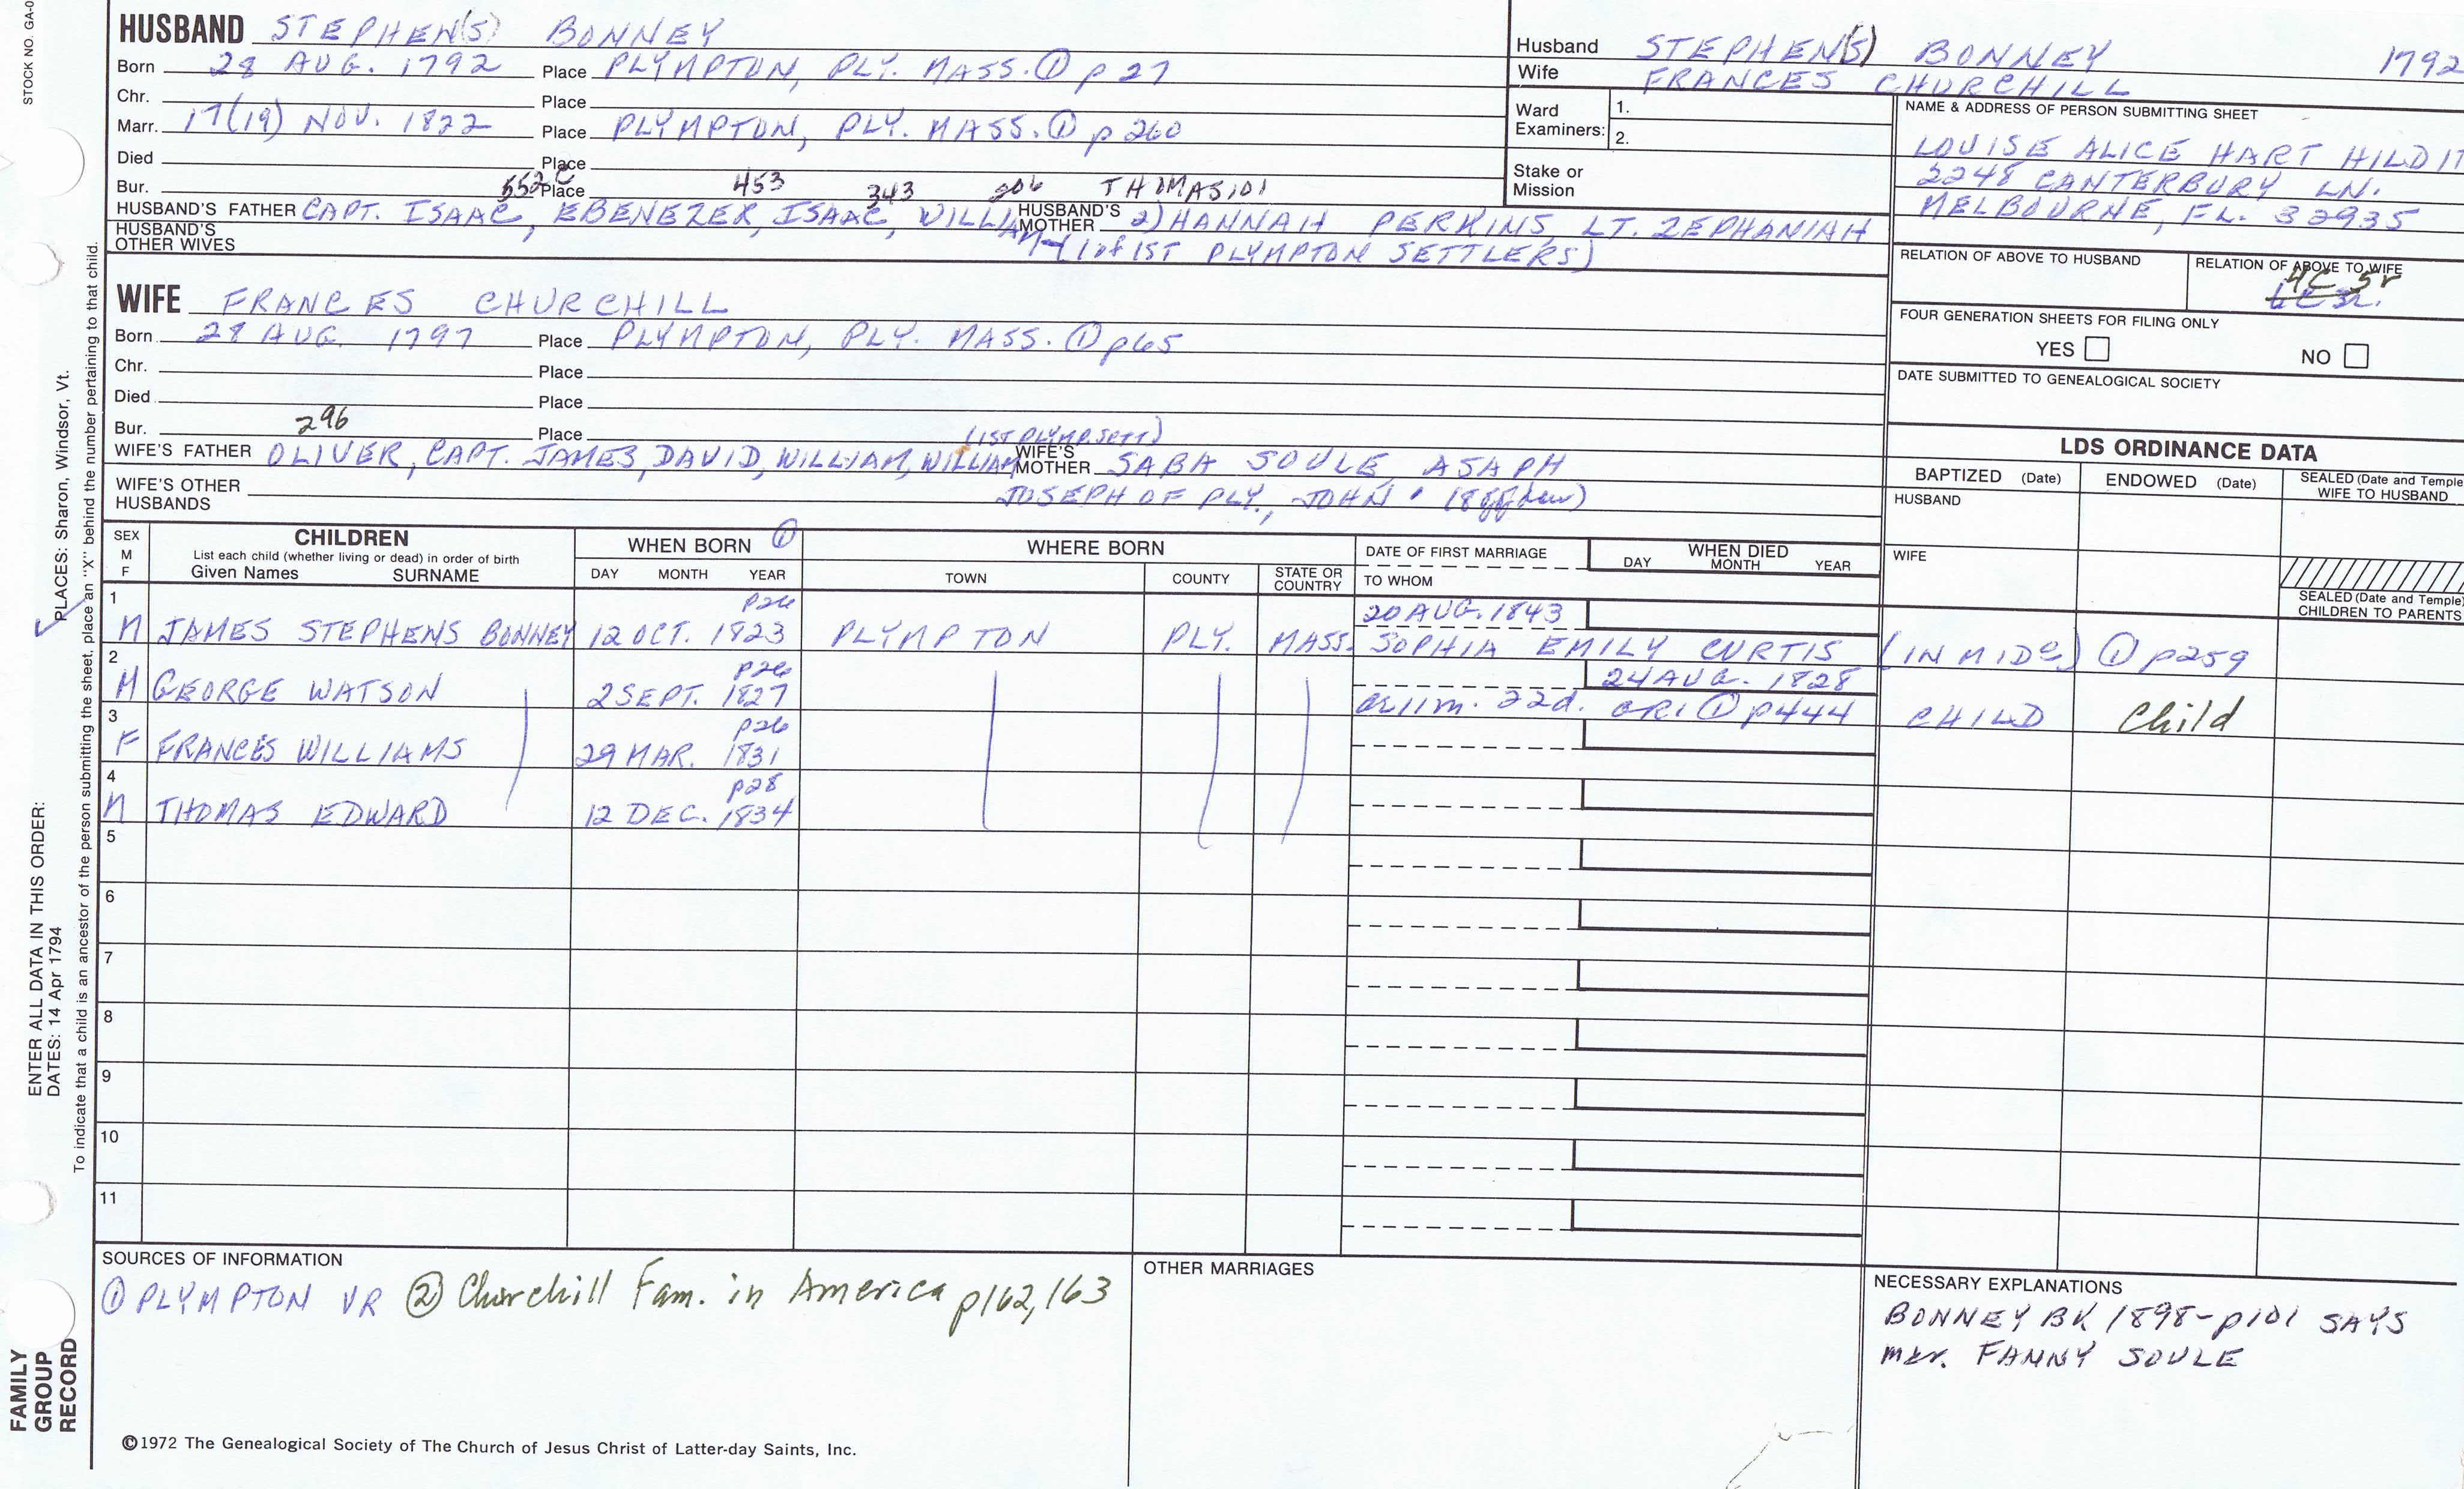 STOCK NO. GA-0
HUSBAND STEPHEN(S) BONNEY
Born 28 AUG. 1792 Place PLYMPTON, PLY. MASS. ① p 27
Chr. Place
Marr. 17(19) NOV. 1822 Place PLYMPTON, PLY. MASS. ① p 260
Died Place
Bur. Place 453 343 206 THOMAS101
HUSBAND'S FATHER CAPT. ISAAC, EBENEZER, ISAAC, WILLIAM HUSBAND'S MOTHER 2) HANNAH PERKINS, LT. ZEPHANIAH
HUSBAND'S OTHER WIVES (1 of 1ST PLYMPTON SETTLERS)
WIFE FRANCES CHURCHILL
Born 28 AUG. 1797 Place PLYMPTON, PLY. MASS. ① p65
Chr. Place
Died Place
Bur. 296 Place (1ST PLYMP. SETT)
WIFE'S FATHER OLIVER, CAPT. JAMES, DAVID, WILLIAM, WILLIAM WIFE'S MOTHER SABA SOULE, ASAPH
WIFE'S OTHER HUSBANDS JOSEPH OF PLY., JOHN
Husband STEPHEN(S) BONNEY 1792
Wife FRANCES CHURCHILL
Ward Examiners: 1.
2.
Stake or Mission
NAME & ADDRESS OF PERSON SUBMITTING SHEET
LOUISE ALICE HART HILDIT
2248 CANTERBURY LN.
MELBOURNE, FL. 32935
RELATION OF ABOVE TO HUSBAND RELATION OF ABOVE TO WIFE
4C 5r
FOUR GENERATION SHEETS FOR FILING ONLY
YES NO
DATE SUBMITTED TO GENEALOGICAL SOCIETY
LDS ORDINANCE DATA
BAPTIZED (Date) ENDOWED (Date) SEALED (Date and Temple WIFE TO HUSBAND
HUSBAND
WIFE
SEALED (Date and Temple) CHILDREN TO PARENTS
SEX M F CHILDREN WHEN BORN ① WHERE BORN DATE OF FIRST MARRIAGE WHEN DIED
List each child (whether living or dead) in order of birth
Given Names SURNAME DAY MONTH YEAR TOWN COUNTY STATE OR COUNTRY TO WHOM DAY MONTH YEAR
1 p26 20 AUG. 1843
M JAMES STEPHENS BONNEY 12 OCT. 1823 PLYMPTON PLY. MASS. SOPHIA EMILY CURTIS (IN MIDO) ① p259
2 p26 24 AUG. 1828
M GEORGE WATSON 2 SEPT. 1827 ae 11m. 22d. GR1 ① p444 CHILD Child
3 p26
F FRANCES WILLIAMS 29 MAR. 1831
4 p28
M THOMAS EDWARD 12 DEC. 1834
5
6
7
8
9
10
11
SOURCES OF INFORMATION
① PLYMPTON VR ② Churchill Fam. in America p162,163
OTHER MARRIAGES
NECESSARY EXPLANATIONS
BONNEY BK 1898-p101 SAYS
mar. FANNY SOULE
©1972 The Genealogical Society of The Church of Jesus Christ of Latter-day Saints, Inc.
FAMILY
GROUP
RECORD
ENTER ALL DATA IN THIS ORDER:
DATES: 14 Apr 1794
PLACES: Sharon, Windsor, Vt.
To indicate that a child is an ancestor of the person submitting the sheet, place an "X" behind the number pertaining to that child.